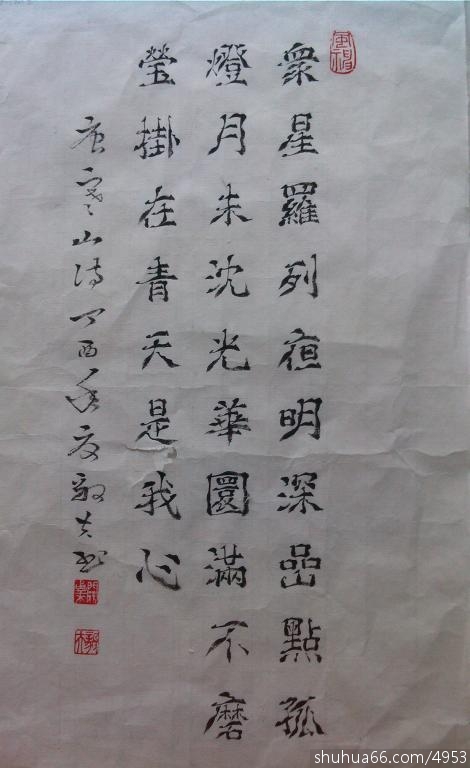 衆星羅列夜明深嵒點孤
燈月未沈光華圜滿不磨
瑩掛在青天是我心
唐寒山诗丁酉年夏
shuhua66.com/4953